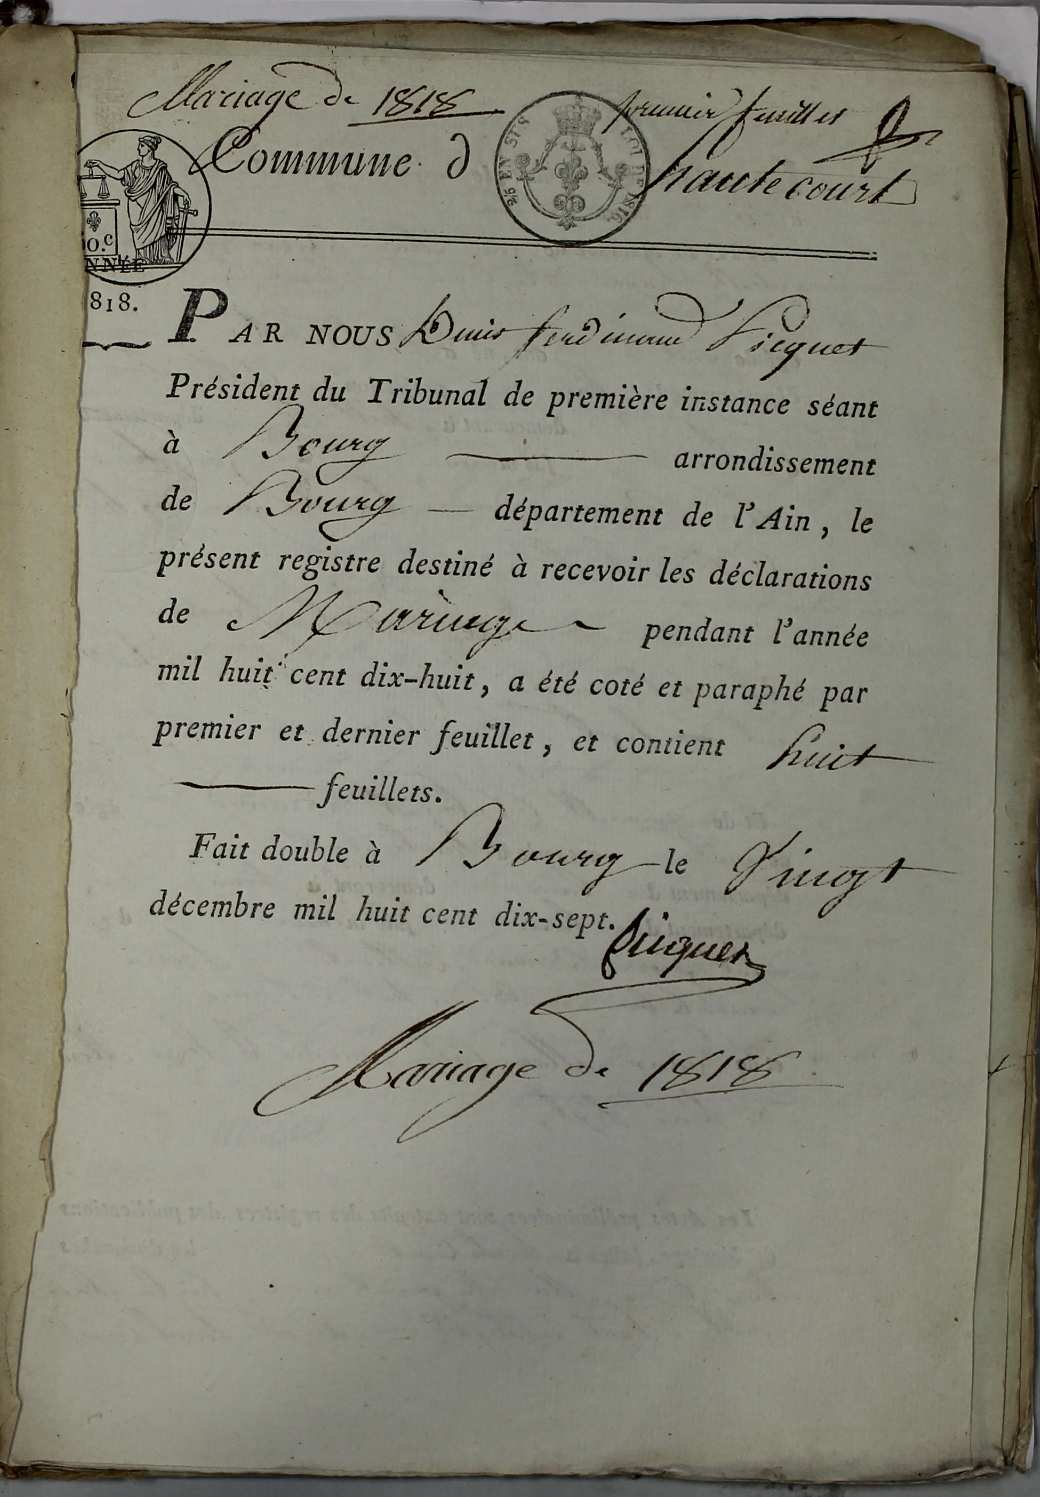 Mariage de 1818
premier feuillet
Commune d hautecourt
25 EN SUS LOI DE 1816
0.c
NNÉE
818.
PAR NOUS Louis ferdinand Picquet
Président du Tribunal de première instance séant
à Bourg arrondissement
de Bourg département de l'Ain, le
présent registre destiné à recevoir les déclarations
de Mariage pendant l'année
mil huit cent dix-huit, a été coté et paraphé par
premier et dernier feuillet, et contient huit
feuillets.
Fait double à Bourg le Vingt
décembre mil huit cent dix-sept.
Picquet
Mariage de 1818